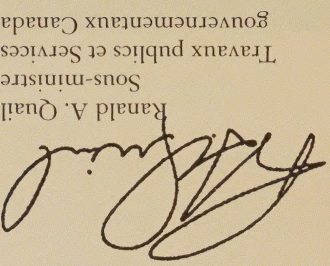 Ranald A. Quail
Sous-ministre
Travaux publics et Services
gouvernementaux Canada